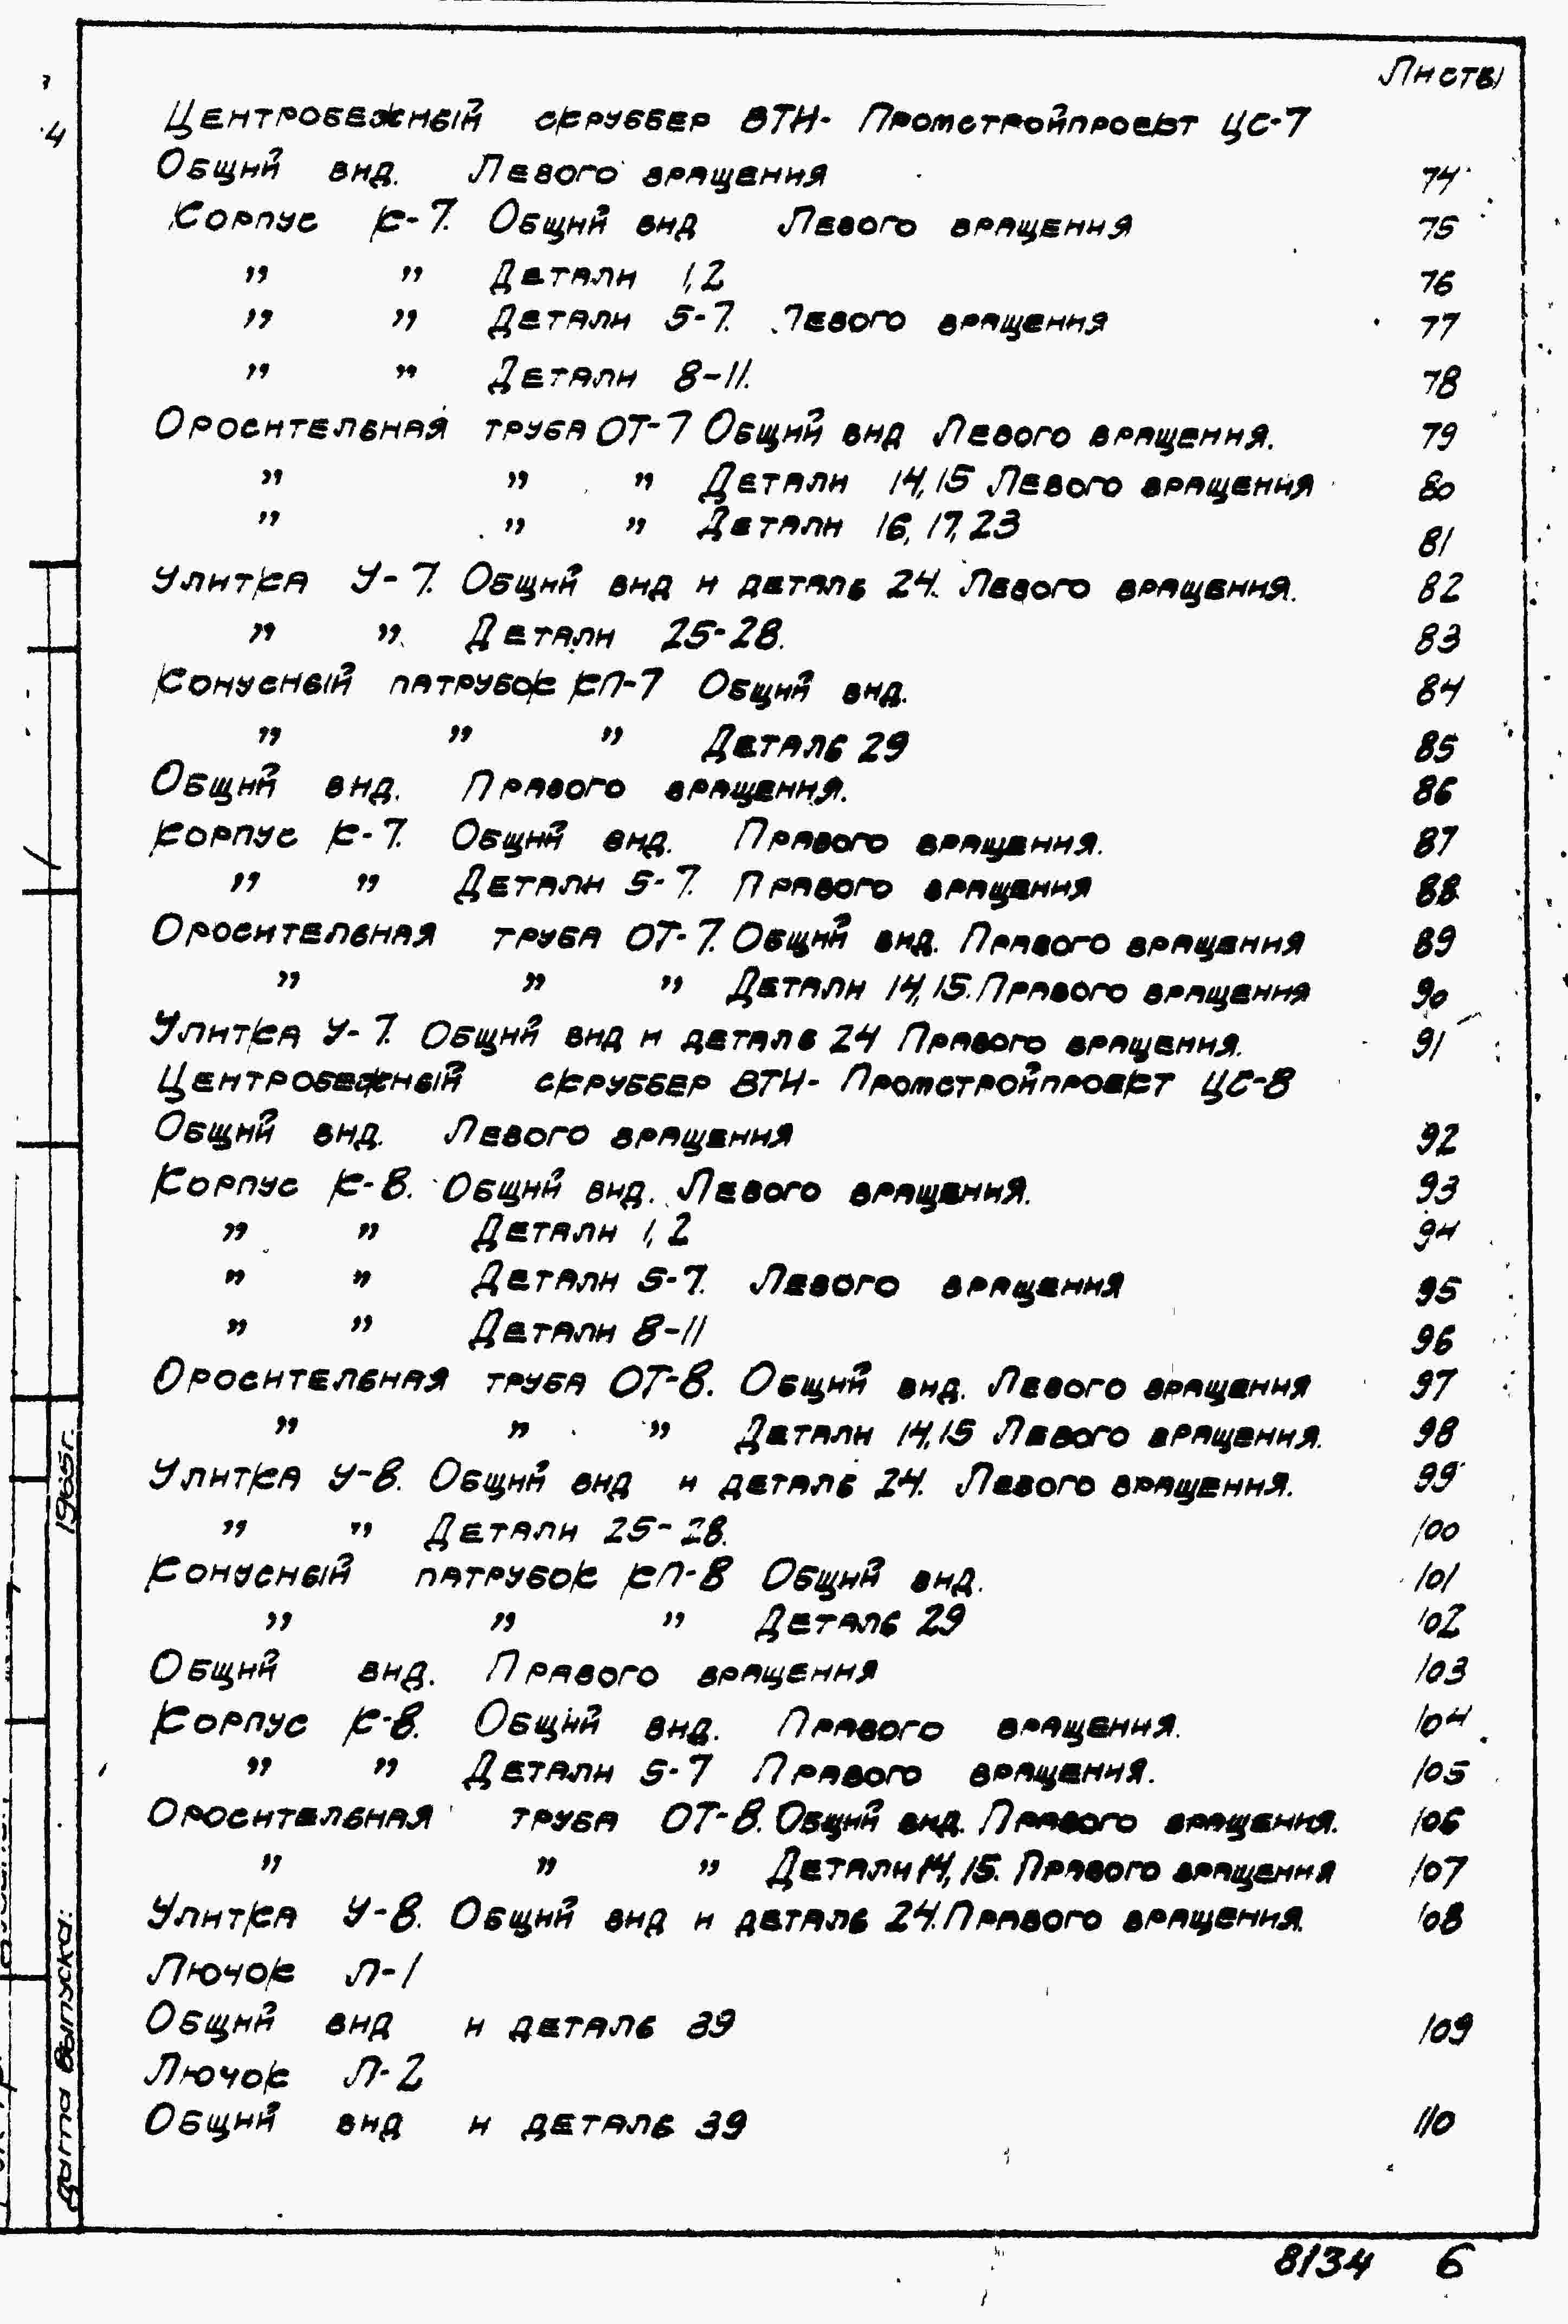 Листы
Центробежный скруббер ВТИ- Промстройпроект ЦС-7
Общий вид. Левого вращения 74
Корпус К-7. Общий вид Левого вращения 75
" " Детали 1,2 76
" " Детали 5-7. Левого вращения 77
" " Детали 8-11. 78
Оросительная труба ОТ-7 Общий вид Левого вращения. 79
" " " Детали 14,15 Левого вращения 80
" " " Детали 16, 17, 23 81
Улитка У-7. Общий вид и деталь 24. Левого вращения. 82
" " Детали 25-28. 83
Конусный патрубок КП-7 Общий вид. 84
" " " Деталь 29 85
Общий вид. Правого вращения. 86
Корпус К-7. Общий вид. Правого вращения. 87
" " Детали 5-7. Правого вращения 88
Оросительная труба ОТ-7. Общий вид. Правого вращения 89
" " " Детали 14, 15. Правого вращения 90
Улитка У-7. Общий вид и деталь 24 Правого вращения. 91
Центробежный скруббер ВТИ- Промстройпроект ЦС-8
Общий вид. Левого вращения 92
Корпус К-8. Общий вид. Левого вращения. 93
" " Детали 1, 2 94
" " Детали 5-7. Левого вращения 95
" " Детали 8-11 96
Оросительная труба ОТ-8. Общий вид. Левого вращения 97
" " " Детали 14,15 Левого вращения. 98
Улитка У-8. Общий вид и деталь 24. Левого вращения. 99
" " Детали 25-28. 100
Конусный патрубок КП-8 Общий вид. 101
" " " Деталь 29 102
Общий вид. Правого вращения 103
Корпус К-8. Общий вид. Правого вращения. 104
" " Детали 5-7 Правого вращения. 105
Оросительная труба ОТ-8. Общий вид. Правого вращения. 106
" " " Детали 14, 15. Правого вращения 107
Улитка У-8. Общий вид и деталь 24. Правого вращения. 108
Лючок Л-1
Общий вид и деталь 39 109
Лючок Л-2
Общий вид и деталь 39 110
Дата выпуска: 1965г.
8134 6